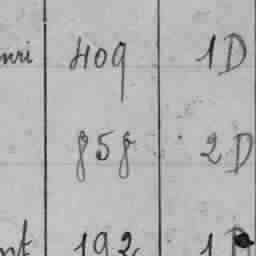 nri 409 1D
858 2D
nt 192 1D